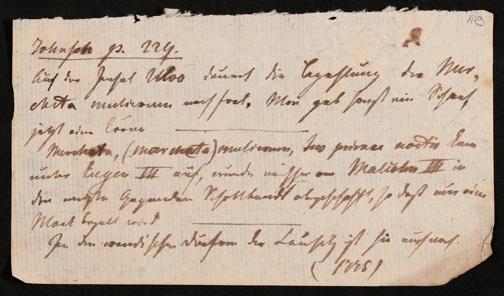 149
Johnson p. 229.
Auf der Insel Ulva dauert die Bezahlung der Mer-
cheta mulierum noch fort. Man gab sonst ein Schaaf
jetzt eine Crone
Mercheta, (marcheta) mulierum, jus primae noctis kam
unter Eugen III auf, wurde nachher von Malcolm III in
den meisten Gegenden Schottlands abgeschafft, so daß nur eine
Mark bezahlt wird
In den wendischen Dörfern der Lausitz ist sie auch noch